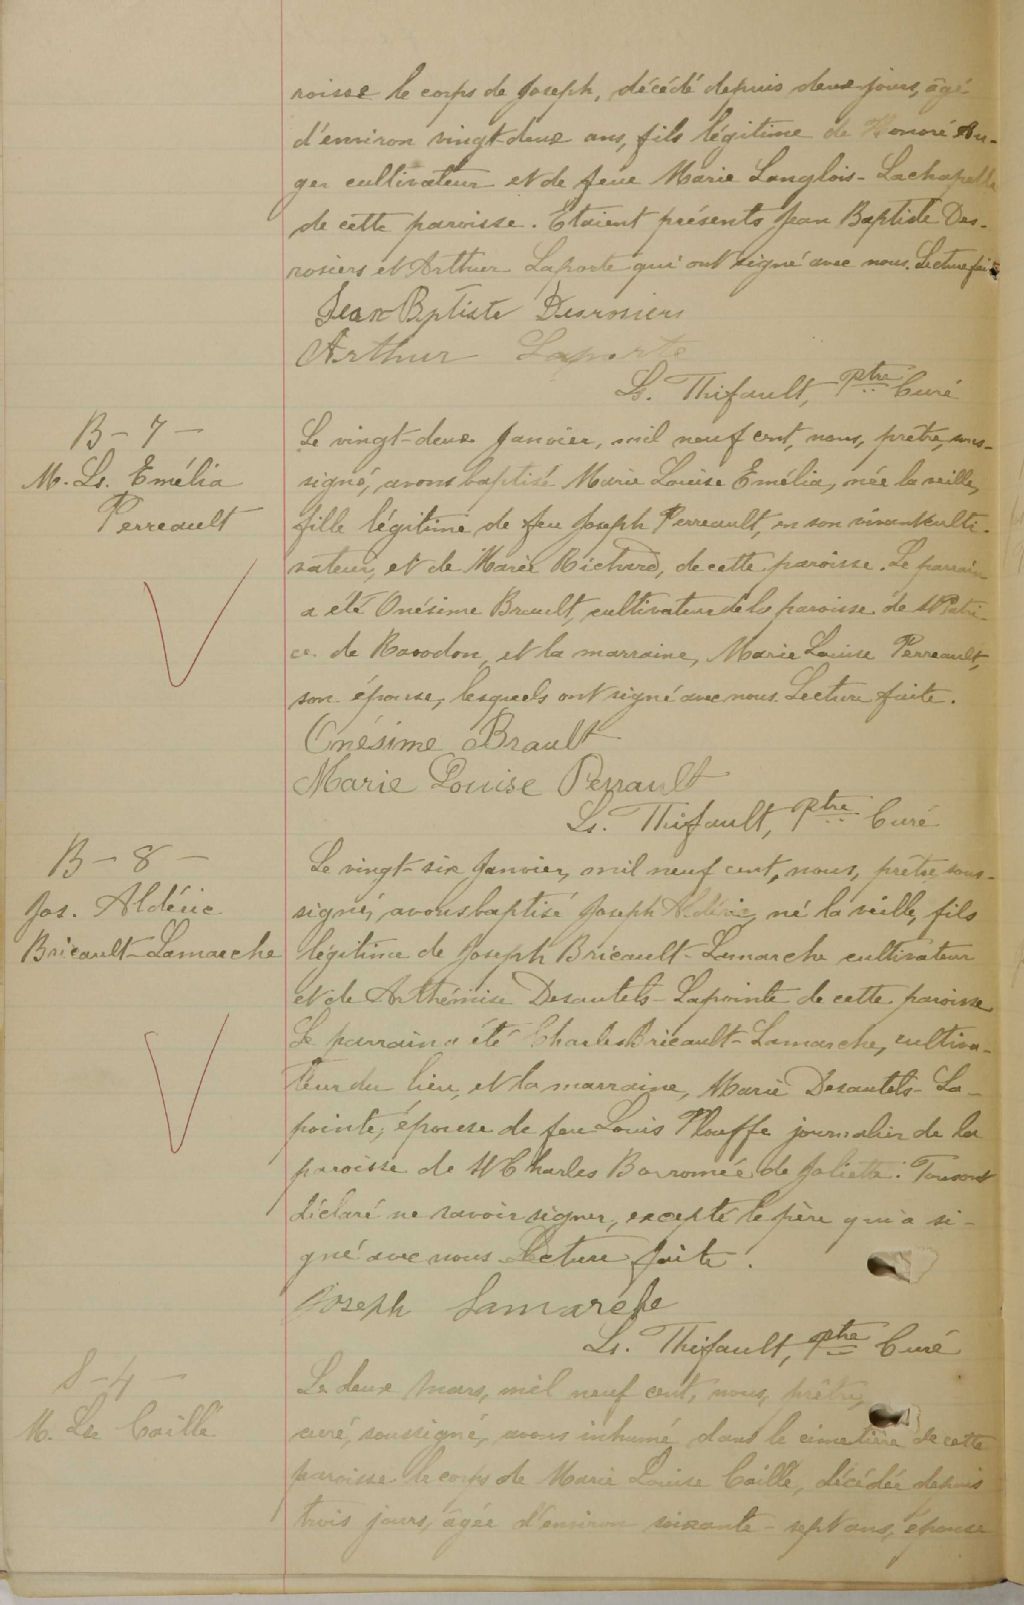 roisse le corps de Joseph, décédé depuis deux jours, âgé
d'environ vingt-deux ans, fils légitime de Honoré Au-
ger cultivateur et de feue Marie Langlois-Lachapelle
de cette paroisse. Etaient présents Jean Baptiste Des-
rosiers et Arthur Laporte qui ont signé avec nous. Lecture faite
Jean Bptiste Desrosiers
Arthur Laporte
Ls. Thifault, Ptre Curé
B-7-
M. Ls. Emélia
Perreault
Le vingt-deux Janvier, mil neuf cent, nous, prêtre, sous-
signé, avons baptisé Marie Louise Emélia, née la veille,
fille légitime de feu Joseph Perreault, en son vivant culti-
vateur, et de Marie Richard, de cette paroisse. Le parrain
a été Onésime Brault, cultivateur de la paroisse de St Patri-
ce de Rawdon, et la marraine, Marie Louise Perreault,
son épouse, lesquels ont signé avec nous. Lecture faite.
Onésime Brault
Marie Louise Perrault
Ls. Thifault, Ptre Curé
B-8-
Jos. Aldéric
Bricault-Lamarche
Le vingt-six Janvier, mil neuf cent, nous, prêtre sous-
signé, avons baptisé Joseph Aldéric, né la veille, fils
légitime de Joseph Bricault-Lamarche cultivateur
et de Arthémise Desautels-Lapointe de cette paroisse
Le parrain a été Charles Bricault-Lamarche, cultiva-
teur du lieu, et la marraine, Marie Desautels-La-
pointe, épouse de feu Louis Plouffe journalier de la
paroisse de St Charles Borromée de Joliette. Tous ont
déclaré ne savoir signer, excepté le père qui a si-
gné avec nous. Lecture faite.
Joseph Lamarche
Ls. Thifault, Ptre Curé
S-4-
M. Lse Caillé
Le deux Mars, mil neuf cent, nous, prêtre,
curé, soussigné, avons inhumé dans le cimetière de cette
paroisse le corps de Marie Louise Caillé, décédée depuis
trois jours, âgée d'environ soixante-sept ans, épouse